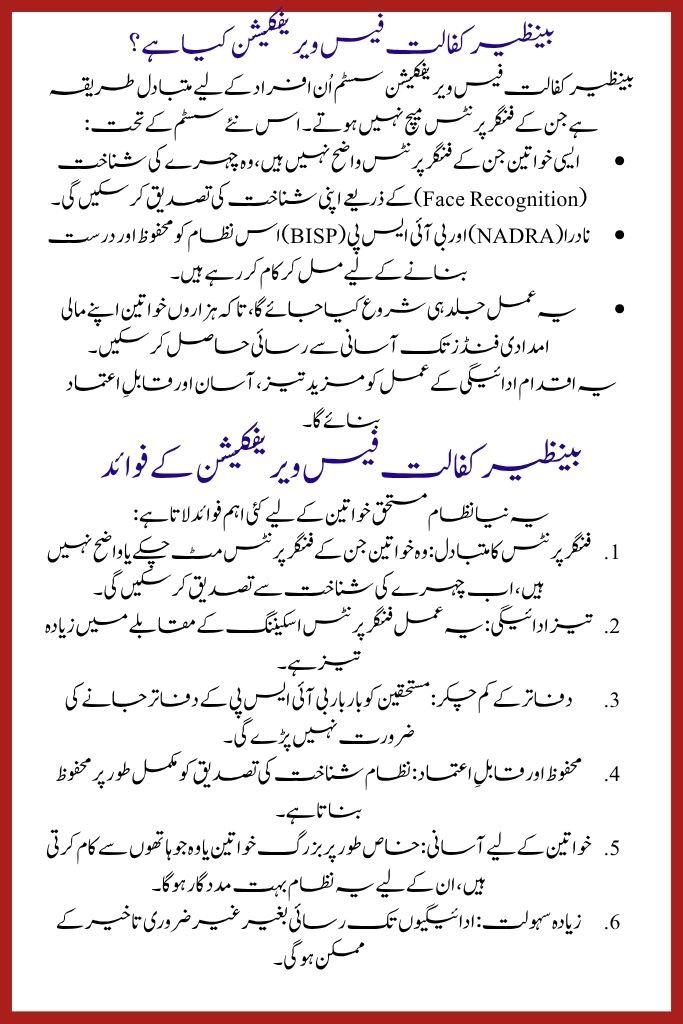 بینظیر کفالت فیس ویریفکیشن کیا ہے؟
بینظیر کفالت فیس ویریفکیشن سسٹم اُن افراد کے لیے متبادل طریقہ
ہے جن کے فنگر پرنٹس میچ نہیں ہوتے۔ اس نئے سسٹم کے تحت:
• ایسی خواتین جن کے فنگر پرنٹس واضح نہیں ہیں، وہ چہرے کی شناخت
(Face Recognition) کے ذریعے اپنی شناخت کی تصدیق کر سکیں گی۔
• نادرا (NADRA) اور بی آئی ایس پی (BISP) اس نظام کو محفوظ اور درست
بنانے کے لیے مل کر کام کر رہے ہیں۔
• یہ عمل جلد ہی شروع کیا جائے گا، تاکہ ہزاروں خواتین اپنے مالی
امدادی فنڈز تک آسانی سے رسائی حاصل کر سکیں۔
یہ اقدام ادائیگی کے عمل کو مزید تیز، آسان اور قابلِ اعتماد
بنائے گا۔
بینظیر کفالت فیس ویریفکیشن کے فوائد
یہ نیا نظام مستحق خواتین کے لیے کئی اہم فوائد لاتا ہے:
1. فنگر پرنٹس کا متبادل: وہ خواتین جن کے فنگر پرنٹس مٹ چکے یا واضح نہیں
ہیں، اب چہرے کی شناخت سے تصدیق کر سکیں گی۔
2. تیز ادائیگی: یہ عمل فنگر پرنٹس اسکیننگ کے مقابلے میں زیادہ
تیز ہے۔
3. دفاتر کے کم چکر: مستحقین کو بار بار بی آئی ایس پی کے دفاتر جانے کی
ضرورت نہیں پڑے گی۔
4. محفوظ اور قابلِ اعتماد: نظام شناخت کی تصدیق کو مکمل طور پر محفوظ
بناتا ہے۔
5. خواتین کے لیے آسانی: خاص طور پر بزرگ خواتین یا وہ جو ہاتھوں سے کام کرتی
ہیں، ان کے لیے یہ نظام بہت مددگار ہوگا۔
6. زیادہ سہولت: ادائیگیوں تک رسائی بغیر غیر ضروری تاخیر کے
ممکن ہوگی۔